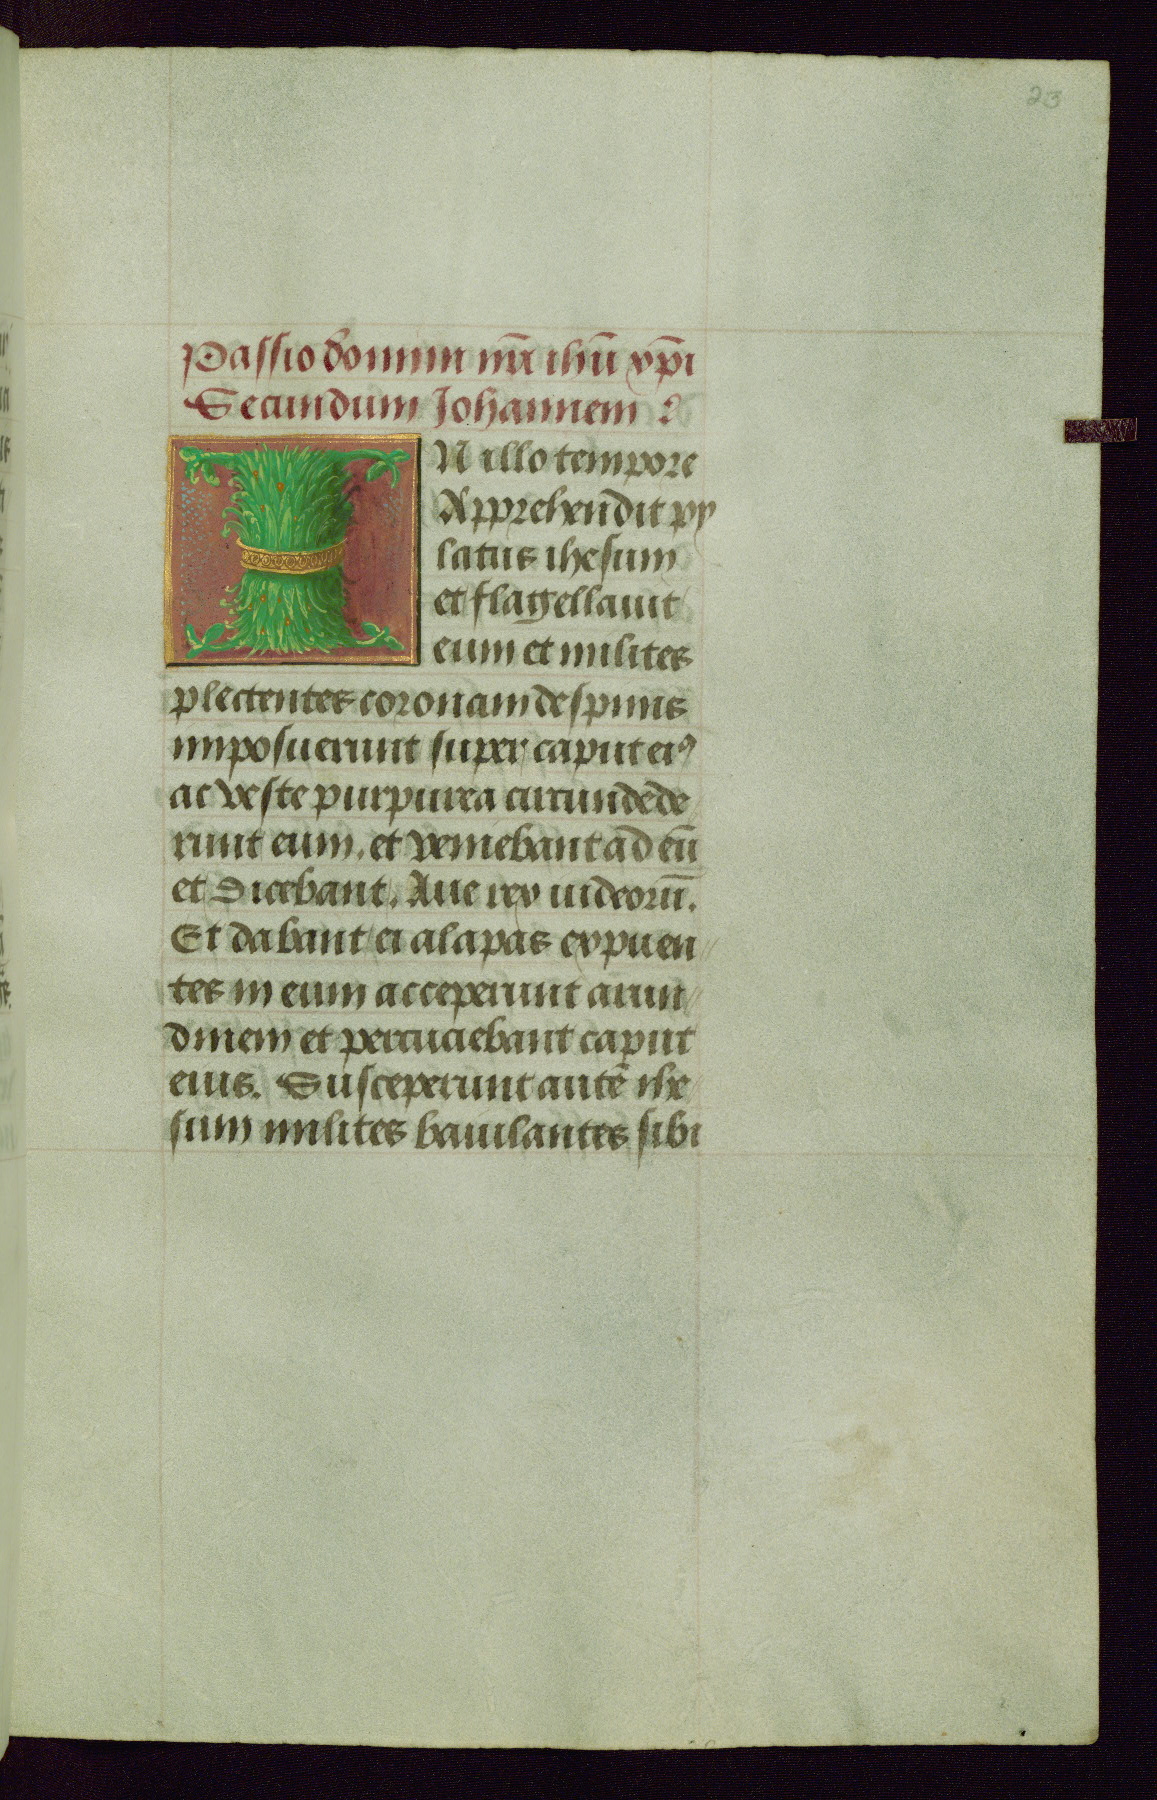 23
Passio domini nr̄i ihū xp̄i
Secundum Johannem
IN illo tempore
Apprehendit py
latus ihesum
et flagellauit
eum et milites
plectentes coronam de spinis
imposuerunt super caput eiꝰ
ac veste purpurea circundede
runt eum. et veniebant ad eū
et dicebant. Aue rex iudeorū.
Et dabant ei alapas expuen
tes in eum acceperunt arun
dinem et percuciebant caput
eius. Susceperunt autē ihe
sum milites baiulantes sibi